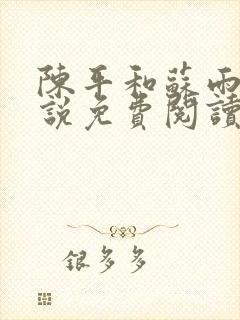 陳平和蘇雨
說免費閱讀
銀多多